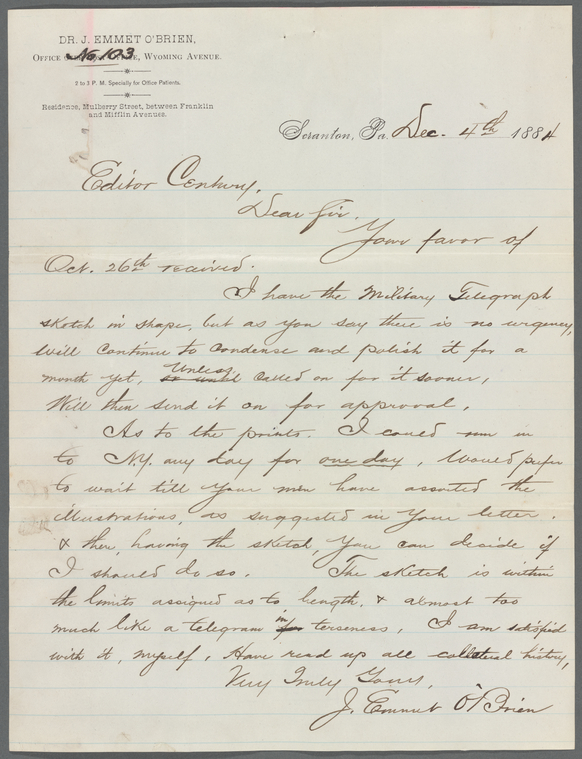 DR. J. EMMET O'BRIEN,
Office No 103, Wyoming Avenue.
2 to 3 P. M. Specially for Office Patients.
Residence, Mulberry Street, between Franklin
and Mifflin Avenues.
Scranton, Pa. Dec. 4th 1884
Editor Century.
Dear Sir.
Your favor of
Oct. 26th received.
I have the Military Telegraph
sketch in shape, but as you say there is no urgency,
Will continue to condense and polish it for a
month yet, Unless called on for it sooner,
Will then send it on for approval.
As to the prints. I could run in
to N.Y. any day for one day, Would prefer
to wait till your men have assorted the
illustrations, as suggested in your letter.
& then, having the sketch, you can decide if
I should do so. The sketch is within
the limits assigned as to length, & almost too
much like a telegram in terseness. I am satisfied
with it, myself. Have read up all collateral history,
Very Truly Yours,
J. Emmet O'Brien